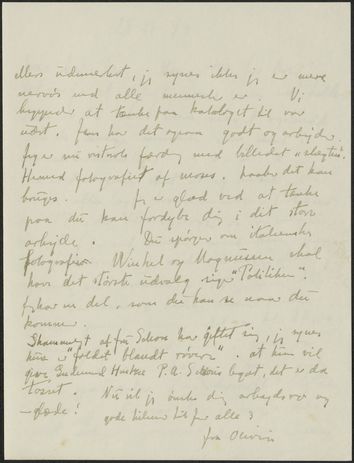 ellers udmærket, jeg synes ikke jeg er mere
nervøs end alle mennesker er. Vi
begynder at tænke paa kataloget til vor
udst. Jens har det ogsaa godt og arbejder.
Jeg er nu vistnok færdig med billedet "slægten".
Hermed fotografiet af moses. haaber det kan
bruges. Jeg er glad ved at tænke
paa du kan fordybe dig i dit store
arbejde. Du spørger om italienske
fotografier. Winkel og Magnussen skal
have det største udvalg siger "Politiken".
Jeg har en del, som du kan se naar du
kommer.
Skammeligt at fru Schou har giftet sig, jeg synes
hun er "faldet blandt røvere". at hun vil
give Gudmund Hentze P.A. Schous legat, det er da
tosset. Nu vil jeg ønske dig arbejdsro og
-glæde! gode hilsner til jer alle 3
fra Olivia